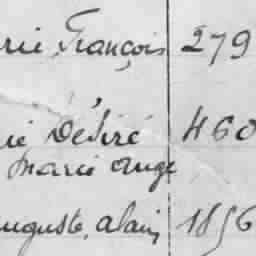 rie, François 279
rie Désiré 460
marie ange
uguste, alain 1856